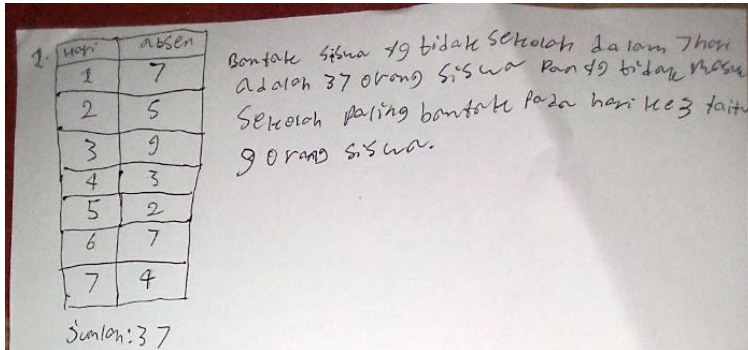 1. Hari absen
1 7
2 5
3 9
4 3
5 2
6 7
7 4
Jumlah: 37
Bantak siswa yg tidak sekolah dalam 7 hari
adalah 37 orang siswa Dan yg tidak masuk
sekolah paling bantak pada hari ke 3 taitu
9 orang siswa.